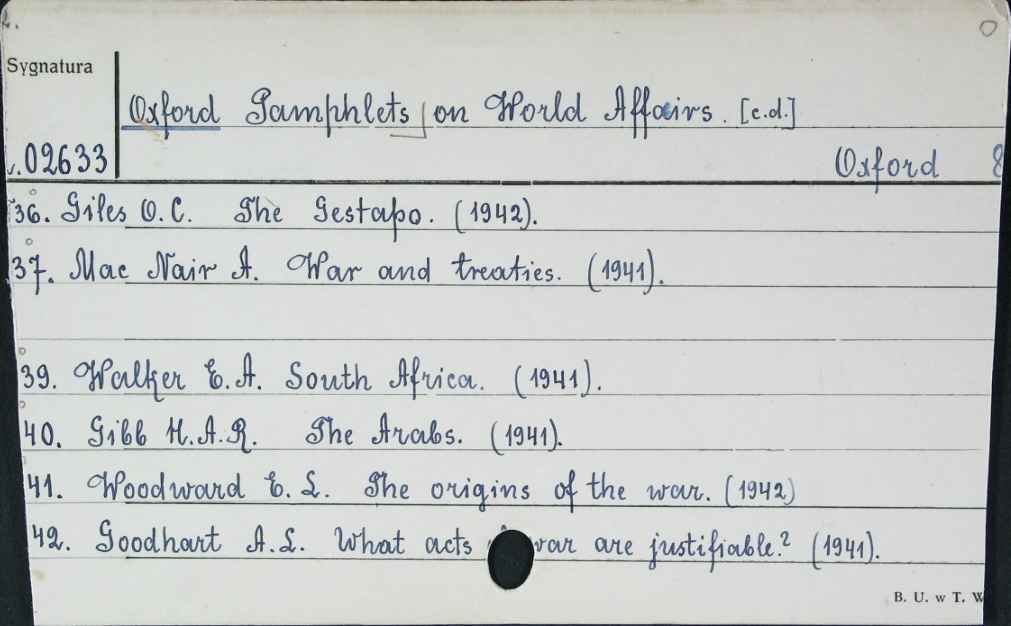 Sygnatura
Oxford Pamphlets on World Affairs. [c.d.]
02633
Oxford 8
36. Giles O.C. The Gestapo. (1942).
37. Mac Nair A. War and treaties. (1941).
39. Walker E.A. South Africa. (1941).
40. Gibb H.A.R. The Arabs. (1941).
41. Woodward E.L. The origins of the war. (1942)
42. Goodhart A.L. What acts war are justifiable? (1941).
B. U. w T. W